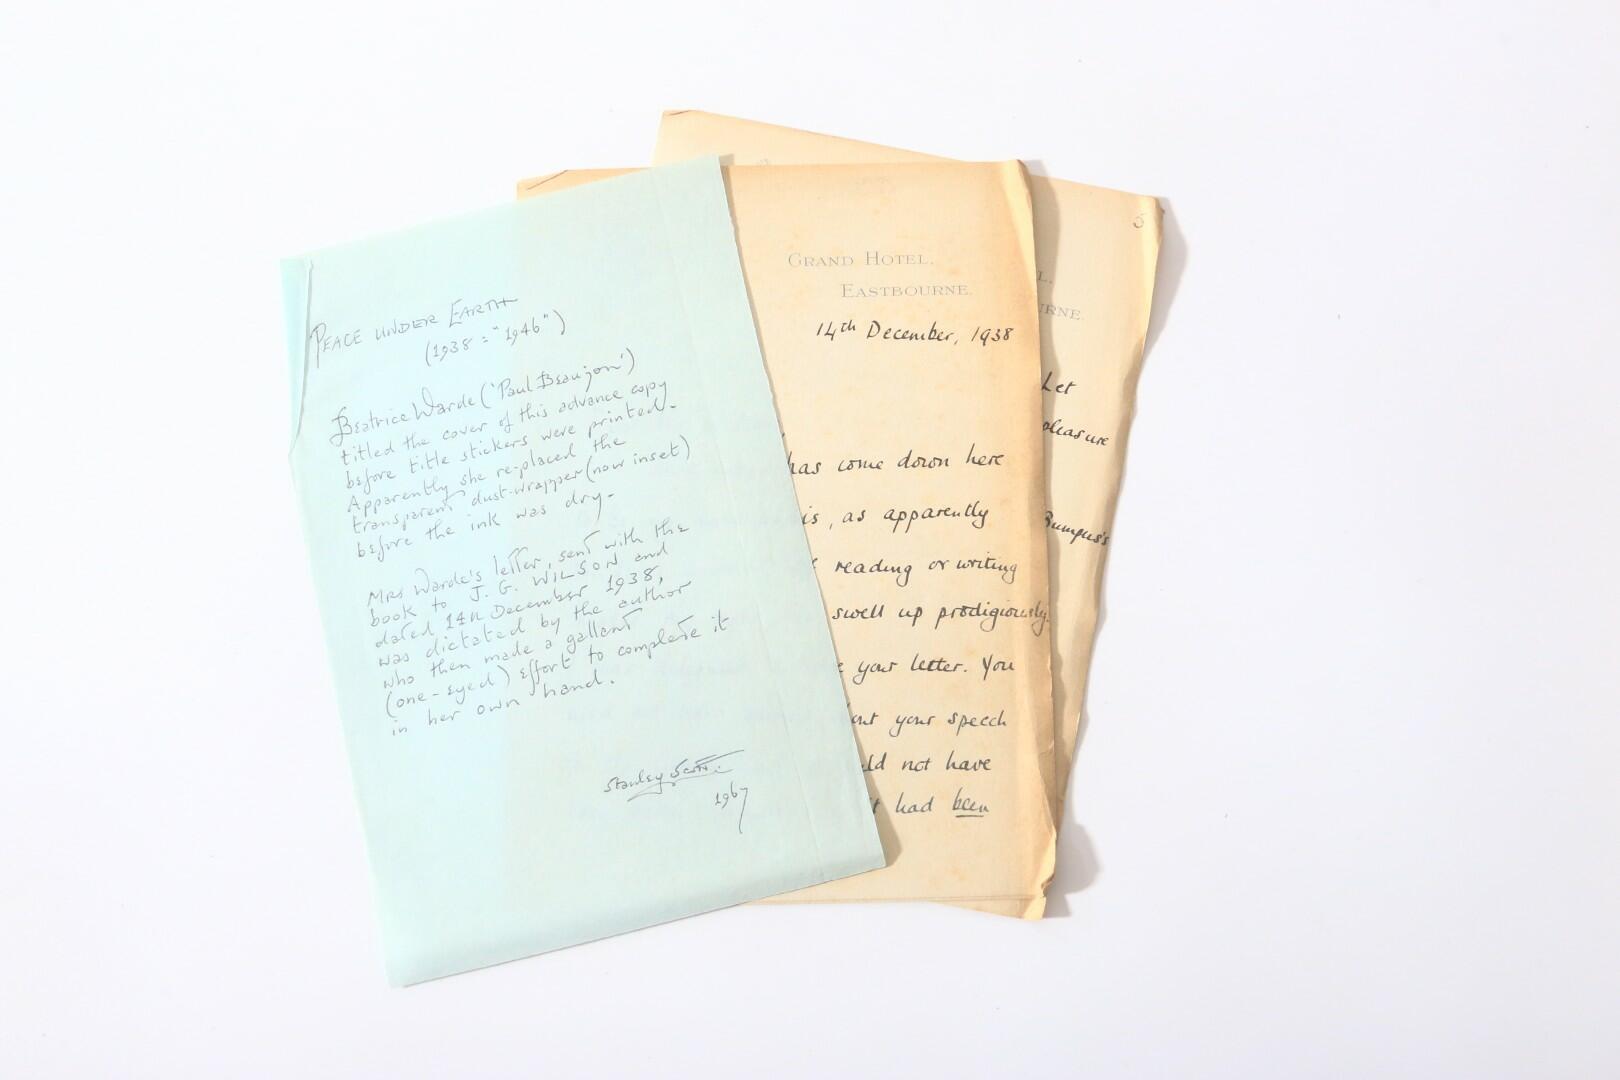 PEACE UNDER EARTH
(1938 = "1946")
Beatrice Warde ('Paul Beaujon')
titled the cover of this advance copy
before title stickers were printed.
Apparently she re-placed the
transparent dust-wrapper (now inset)
before the ink was dry.
Mrs Warde's letter, sent with the
book to J. G. WILSON and
dated 14th December 1938,
was dictated by the author
who then made a gallant
(one-eyed) effort to complete it
in her own hand.
Stanley Scott.
1967
GRAND HOTEL.
EASTBOURNE.
14th December, 1938
has come down here
is, as apparently
reading or writing
swell up prodigiously.
your letter. You
your speech
not have
had been
5
L.
RNE.
Let
pleasure
Bumpus's